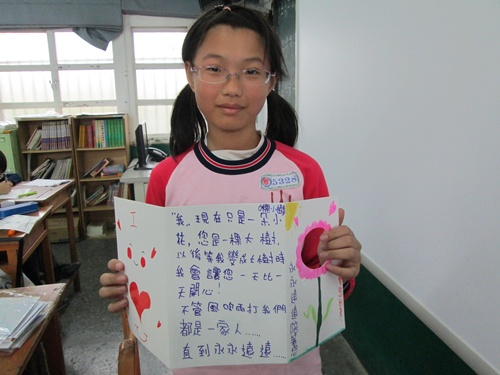 I
"我"現在只是一朵小
花，您是一棵大樹，
以後等我變成大樹時
我會讓您一天比一
天開心！
不管風吹雨打我們
都是一家人……
直到永永遠遠……
5328